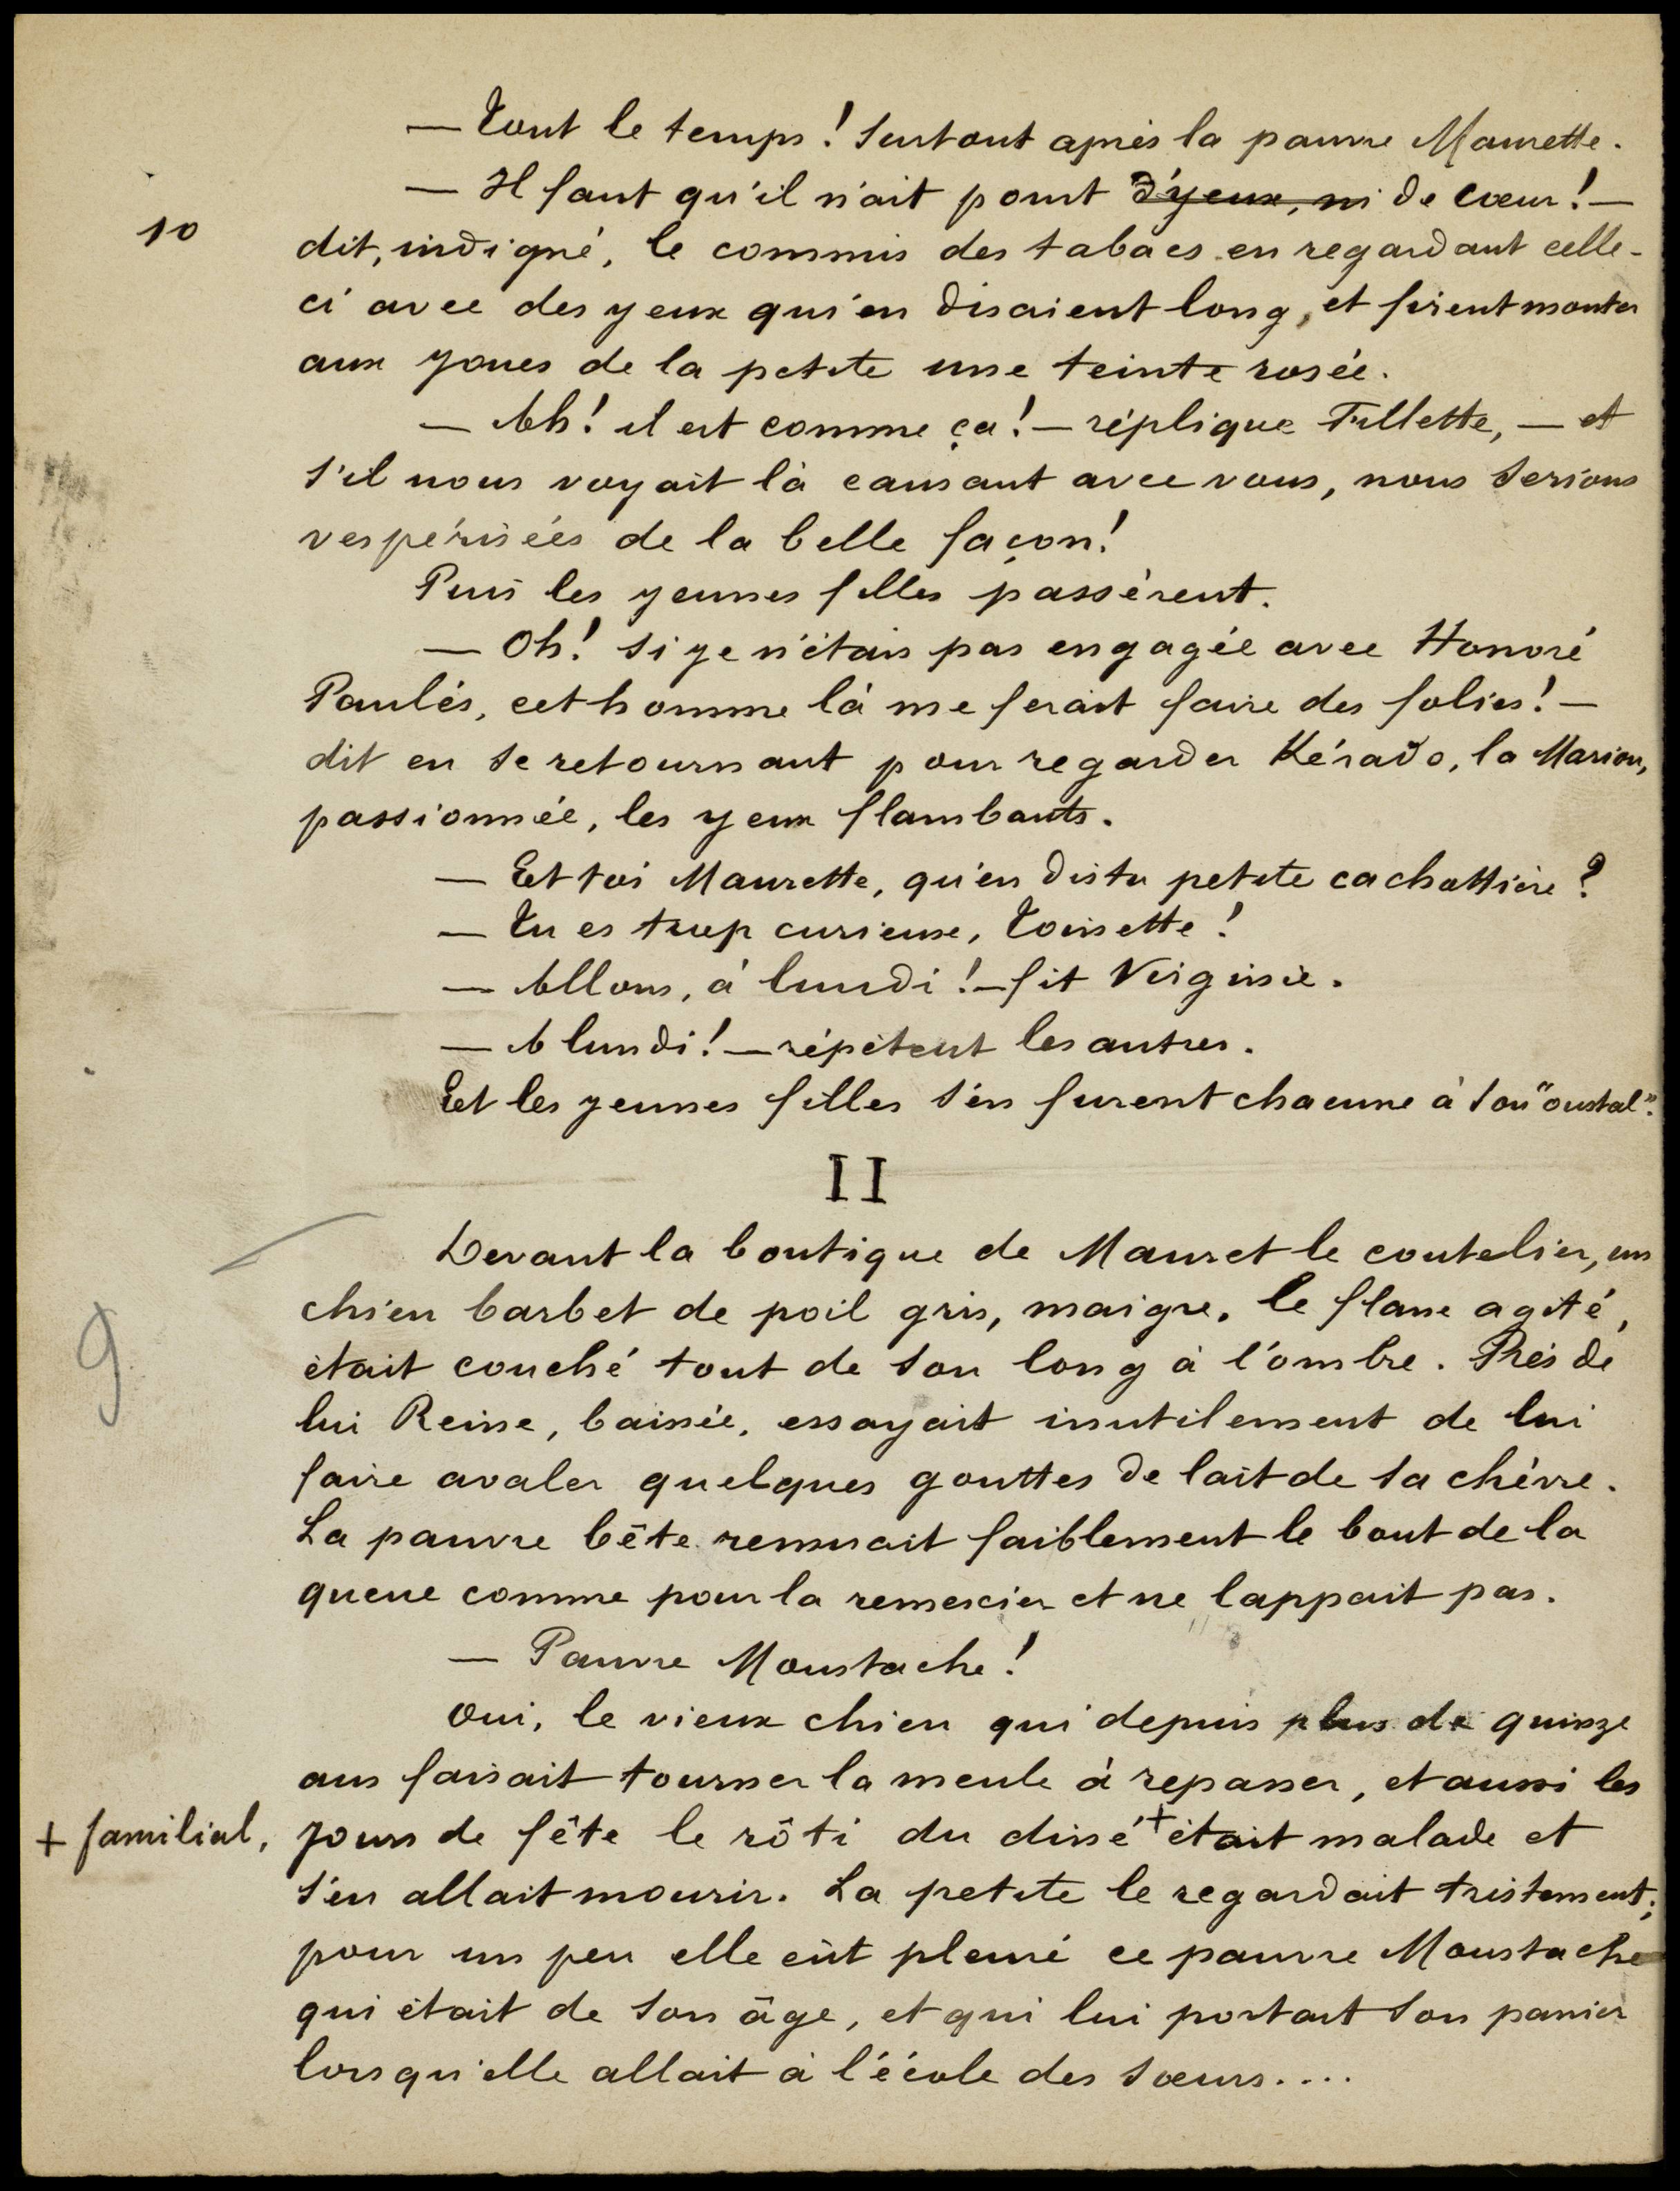 — Tout le temps ! Surtout après la pauvre Maurette.
— Il faut qu'il n'ait point d'yeux, ni de cœur ! —
10
dit, indigné, le commis des tabacs en regardant celle-
ci avec des yeux qui en disaient long, et firent monter
aux joues de la petite une teinte rosée.
— Ah ! il est comme ça ! — réplique Fillette, — et
s'il nous voyait là causant avec vous, nous serions
vespérisées de la belle façon !
Puis les jeunes filles passèrent.
— Oh ! si je n'étais pas engagée avec Honoré
Paulés, cet homme là me ferait faire des folies ! —
dit en se retournant pour regarder Kérado, la Marion,
passionnée, les yeux flambants.
— Et toi Maurette, qu'en dis tu petite cachottière ?
— Tu es trop curieuse, Toinette !
— Allons, à lundi ! — fit Virginie.
— A lundi ! — répètent les autres.
Et les jeunes filles s'en furent chacune à son "oustal".
II
Devant la boutique de Mauret le coutelier, un
chien barbet de poil gris, maigre, le flanc agité,
9
était couché tout de son long à l'ombre. Près de
lui Reine, baissée, essayait inutilement de lui
faire avaler quelques gouttes de lait de sa chèvre.
La pauvre bête remuait faiblement le bout de la
queue comme pour la remercier et ne lappait pas.
— Pauvre Moustache !
Oui, le vieux chien qui depuis plus de quinze
ans faisait tourner la meule à repasser, et aussi les
+ familial,
jours de fête le rôti du dîné + était malade et
s'en allait mourir. La petite le regardait tristement ;
pour un peu elle eût pleuré ce pauvre Moustache
qui était de son âge, et qui lui portait son panier
lorsqu'elle allait à l'école des sœurs....